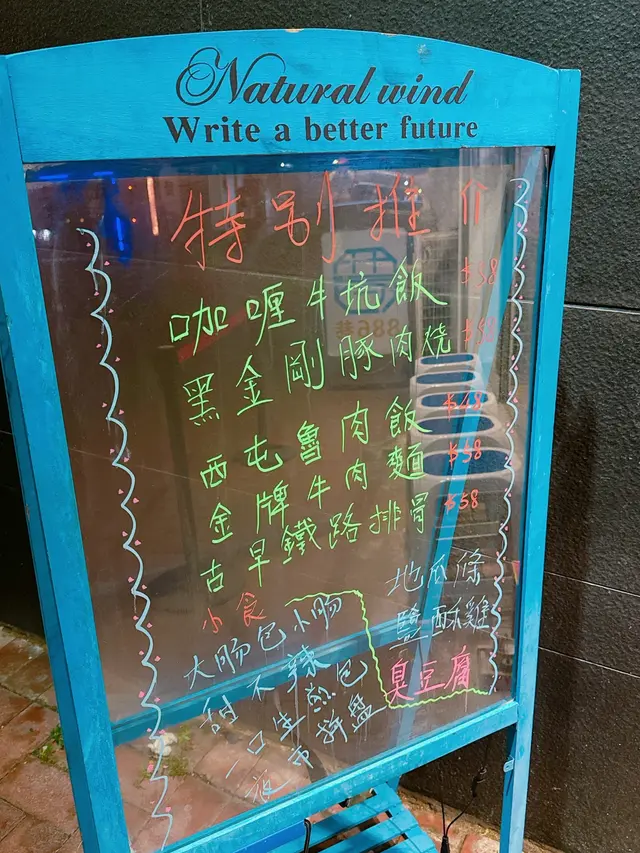 Natural wind
Write a better future
特别推介
咖喱牛坑飯 $58
黑金剛豚肉燒 $52
西屯魯肉飯 $48
金牌牛肉麵 $58
古早鐵路排骨 $58
小食
大肠包小肠
甜不辣
一口生煎包
夜市拼盤
地瓜條
鹽酥雞
臭豆腐